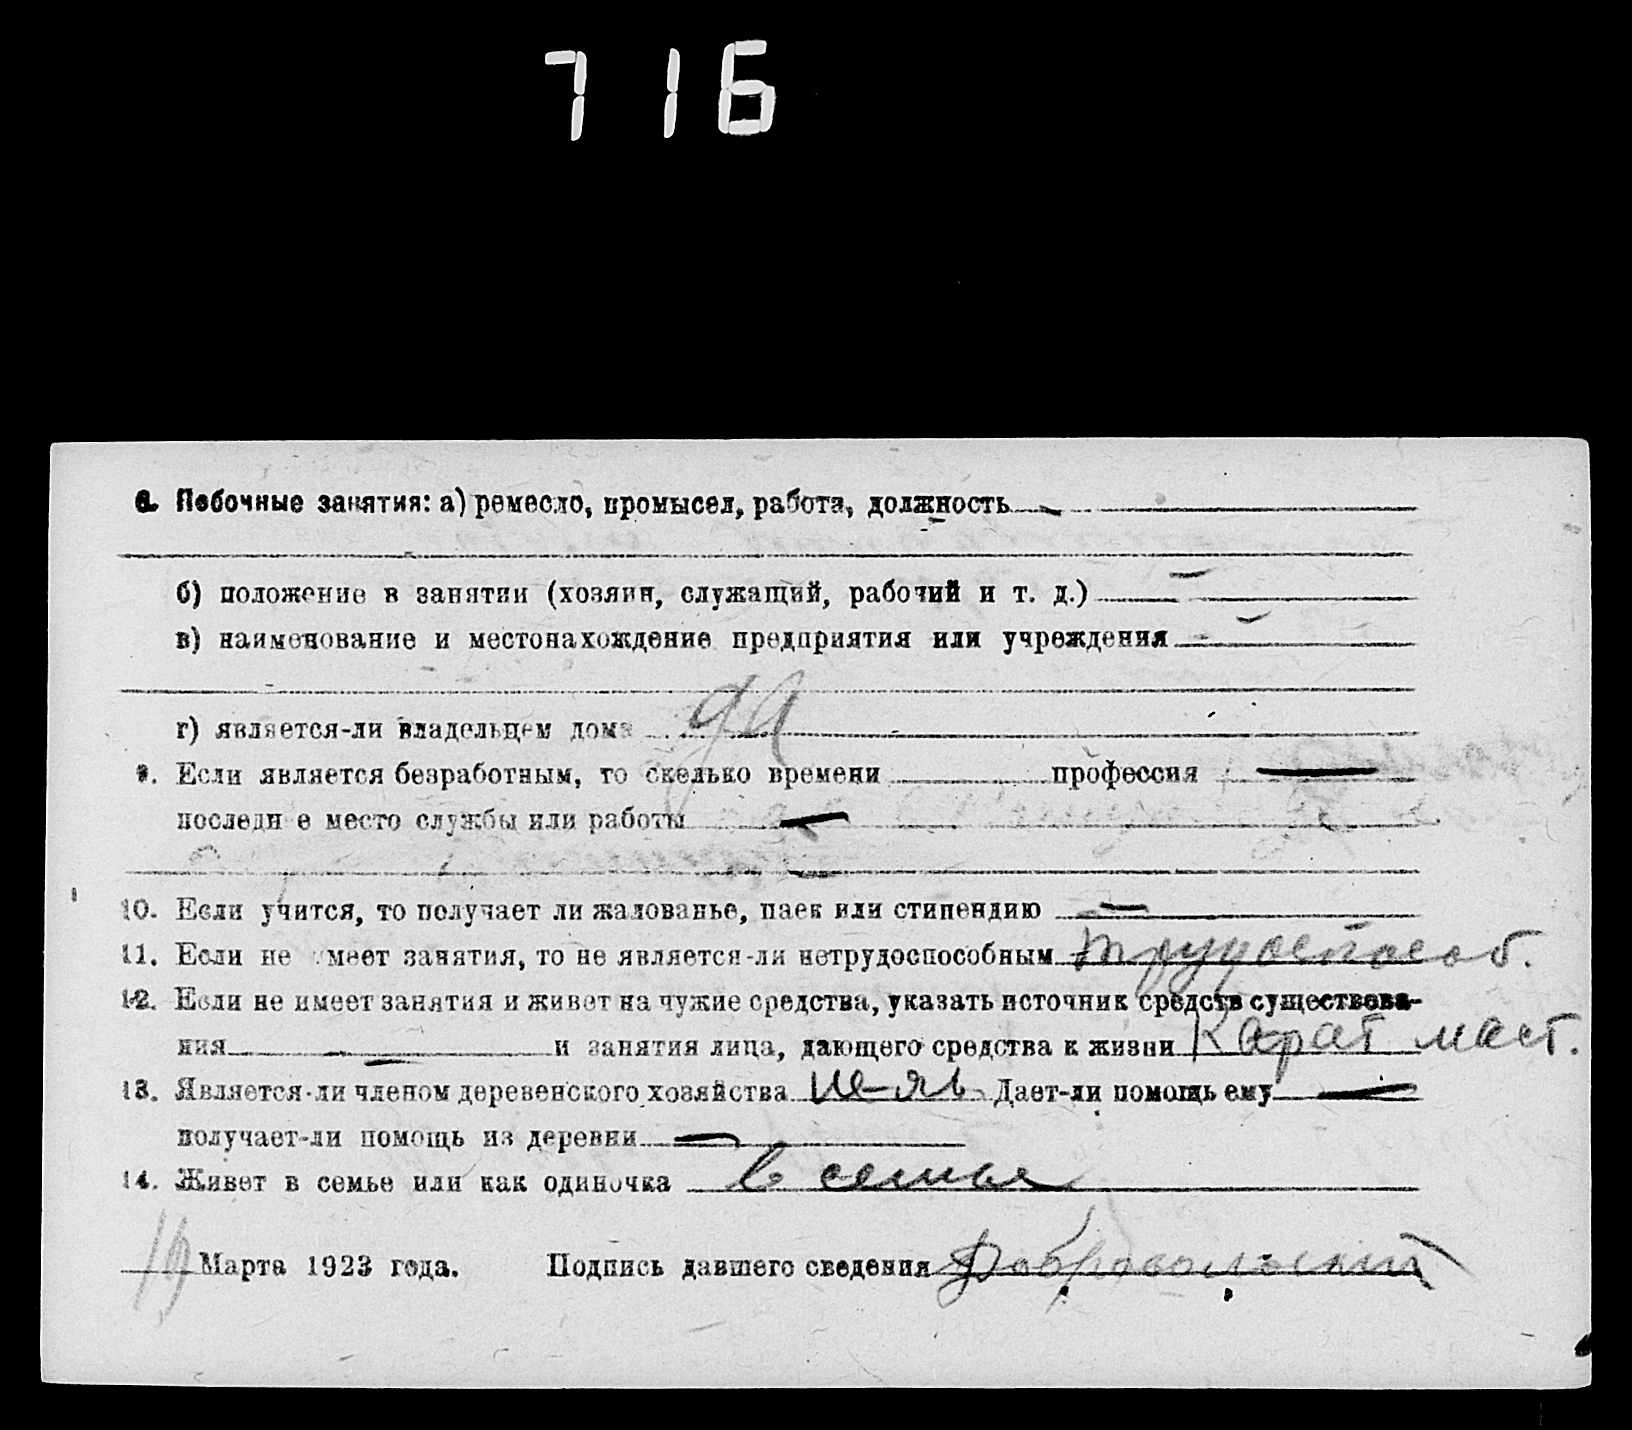 716
8. Побочные занятия: а) ремесло, промысел, работа, должность —
б) положение в занятии (хозяин, служащий, рабочий и т. д.) —
в) наименование и местонахождение предприятия или учреждения —
г) является-ли владельцем дома да
9. Если является безработным, то сколько времени профессия —
последн е место службы или работы —
10. Если учится, то получает ли жалованье, паек или стипендию —
11. Если не имеет занятия, то не является-ли нетрудоспособным трудоспособ.
12. Если не имеет занятия и живет на чужие средства, указать источник средств существова-
ния — и занятия лица, дающего средства к жизни маст.
13. Является-ли членом деревенского хозяйства Дает-ли помощь ему —
получает-ли помощь из деревни —
14. Живет в семье или как одиночка в семье
Марта 1923 года. Подпись давшего сведения Добровольский